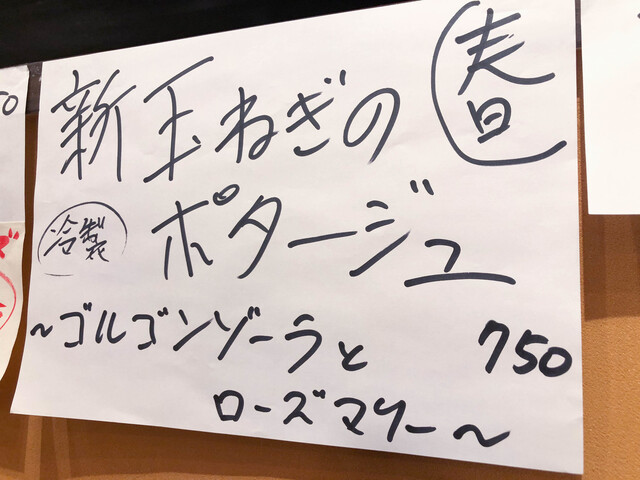 新玉ねぎの
春
冷製
ポタージュ
~ゴルゴンゾーラと
750
ローズマリー~